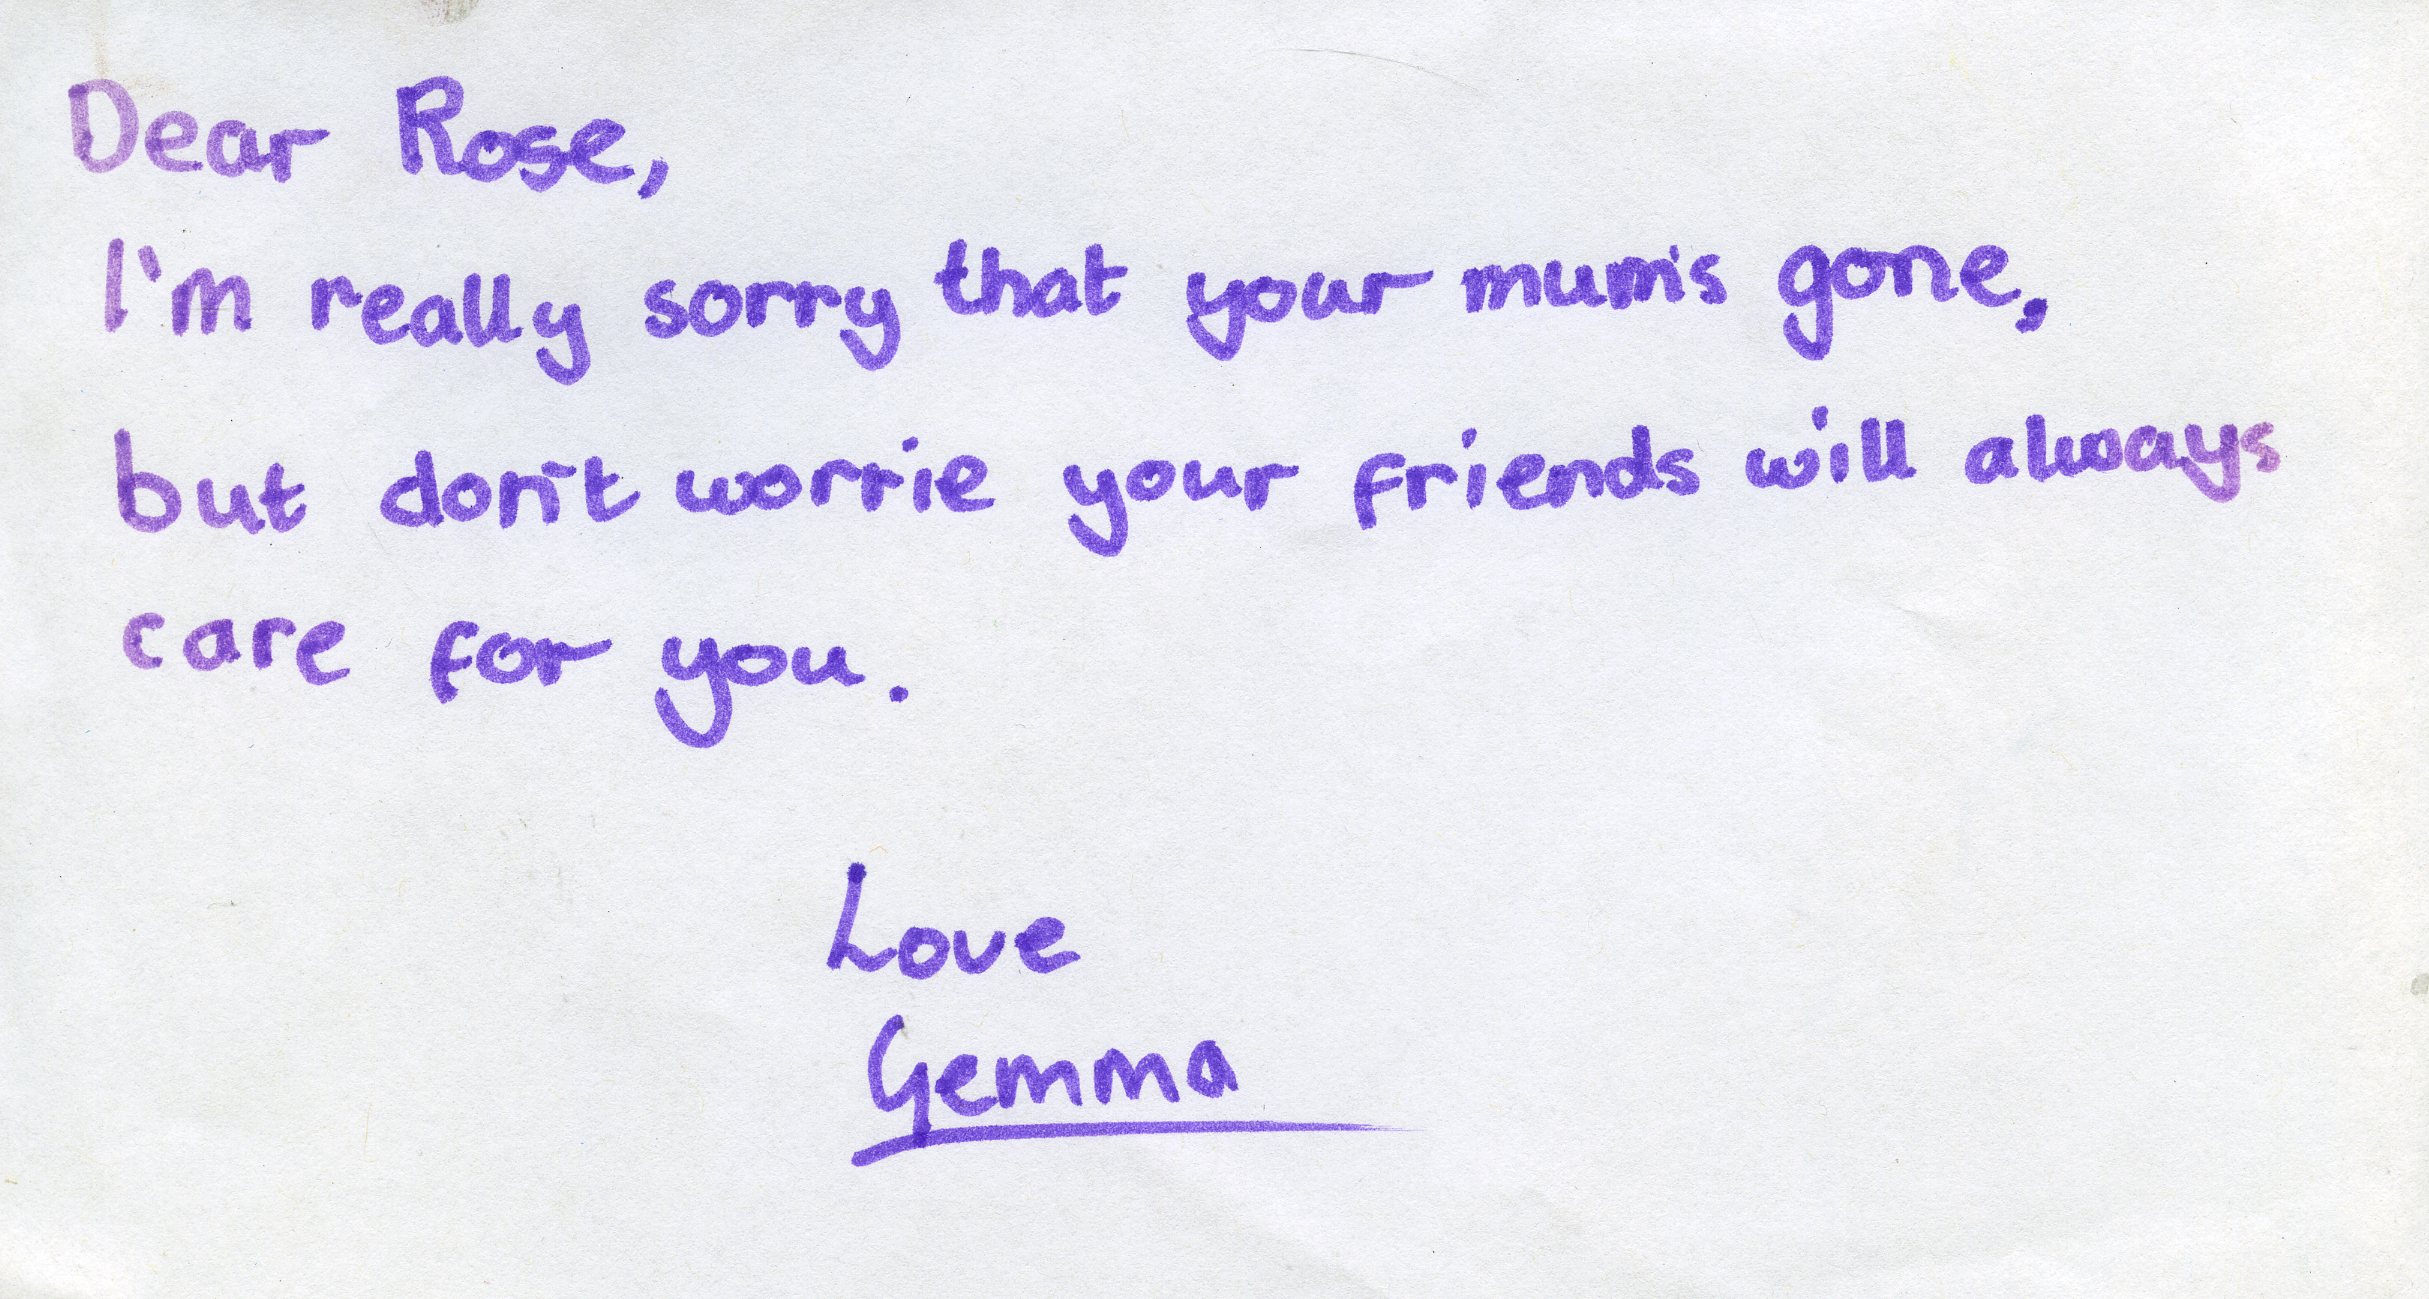 Dear Rose,
I'm really sorry that your mum's gone,
but don't worrie your friends will always
care for you.
Love
Gemma